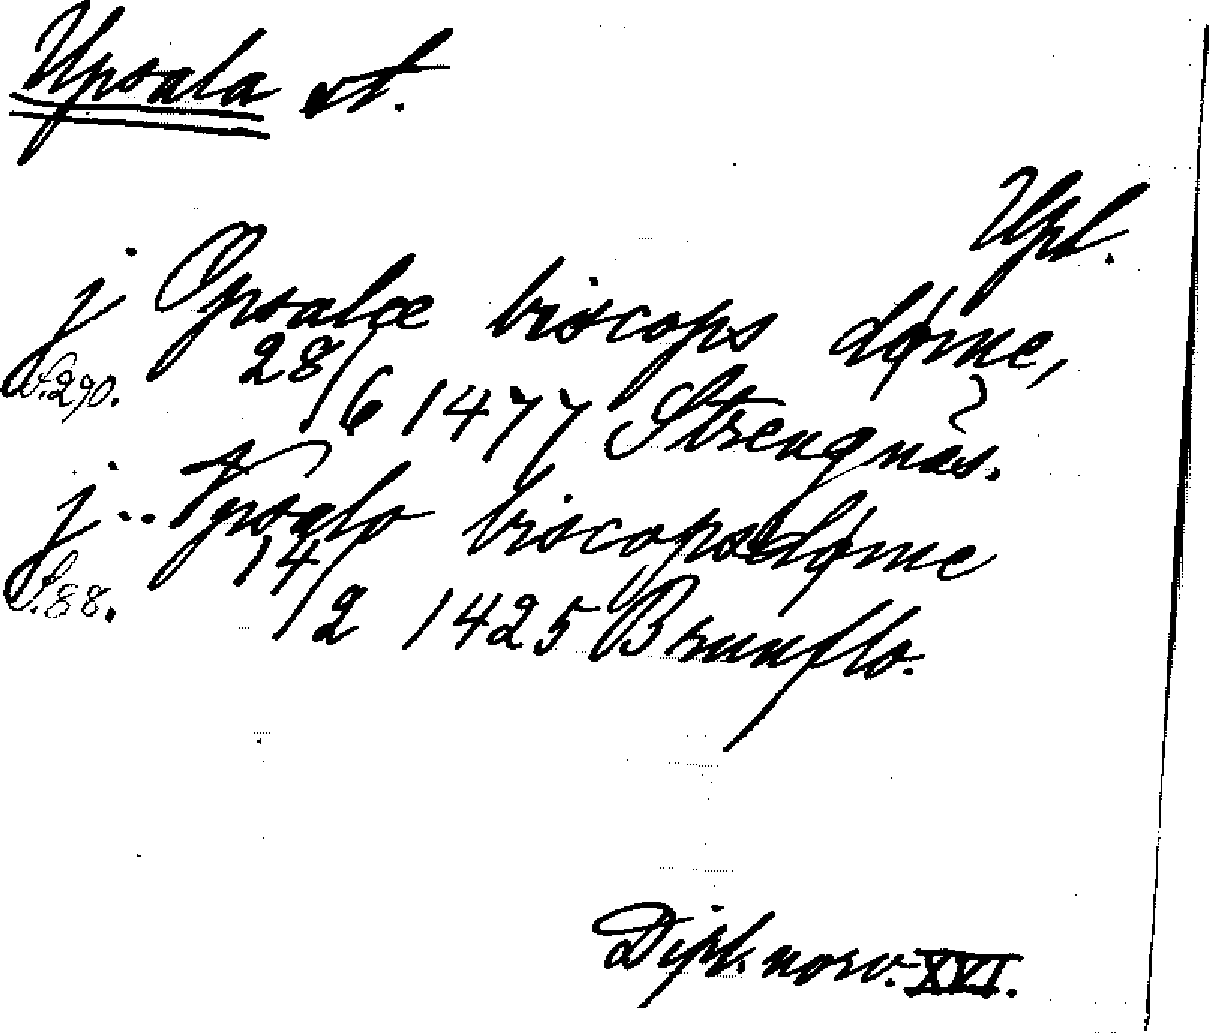 Upsala st.
Upl.
j Opsalæ biscops døme,
s. 290. 28/6 1477 Strengnäs.
j.. Vpsalo biscopsdøme
s. 88. 14/2 1425 Brunflo.
Dipl. norv. XVI.